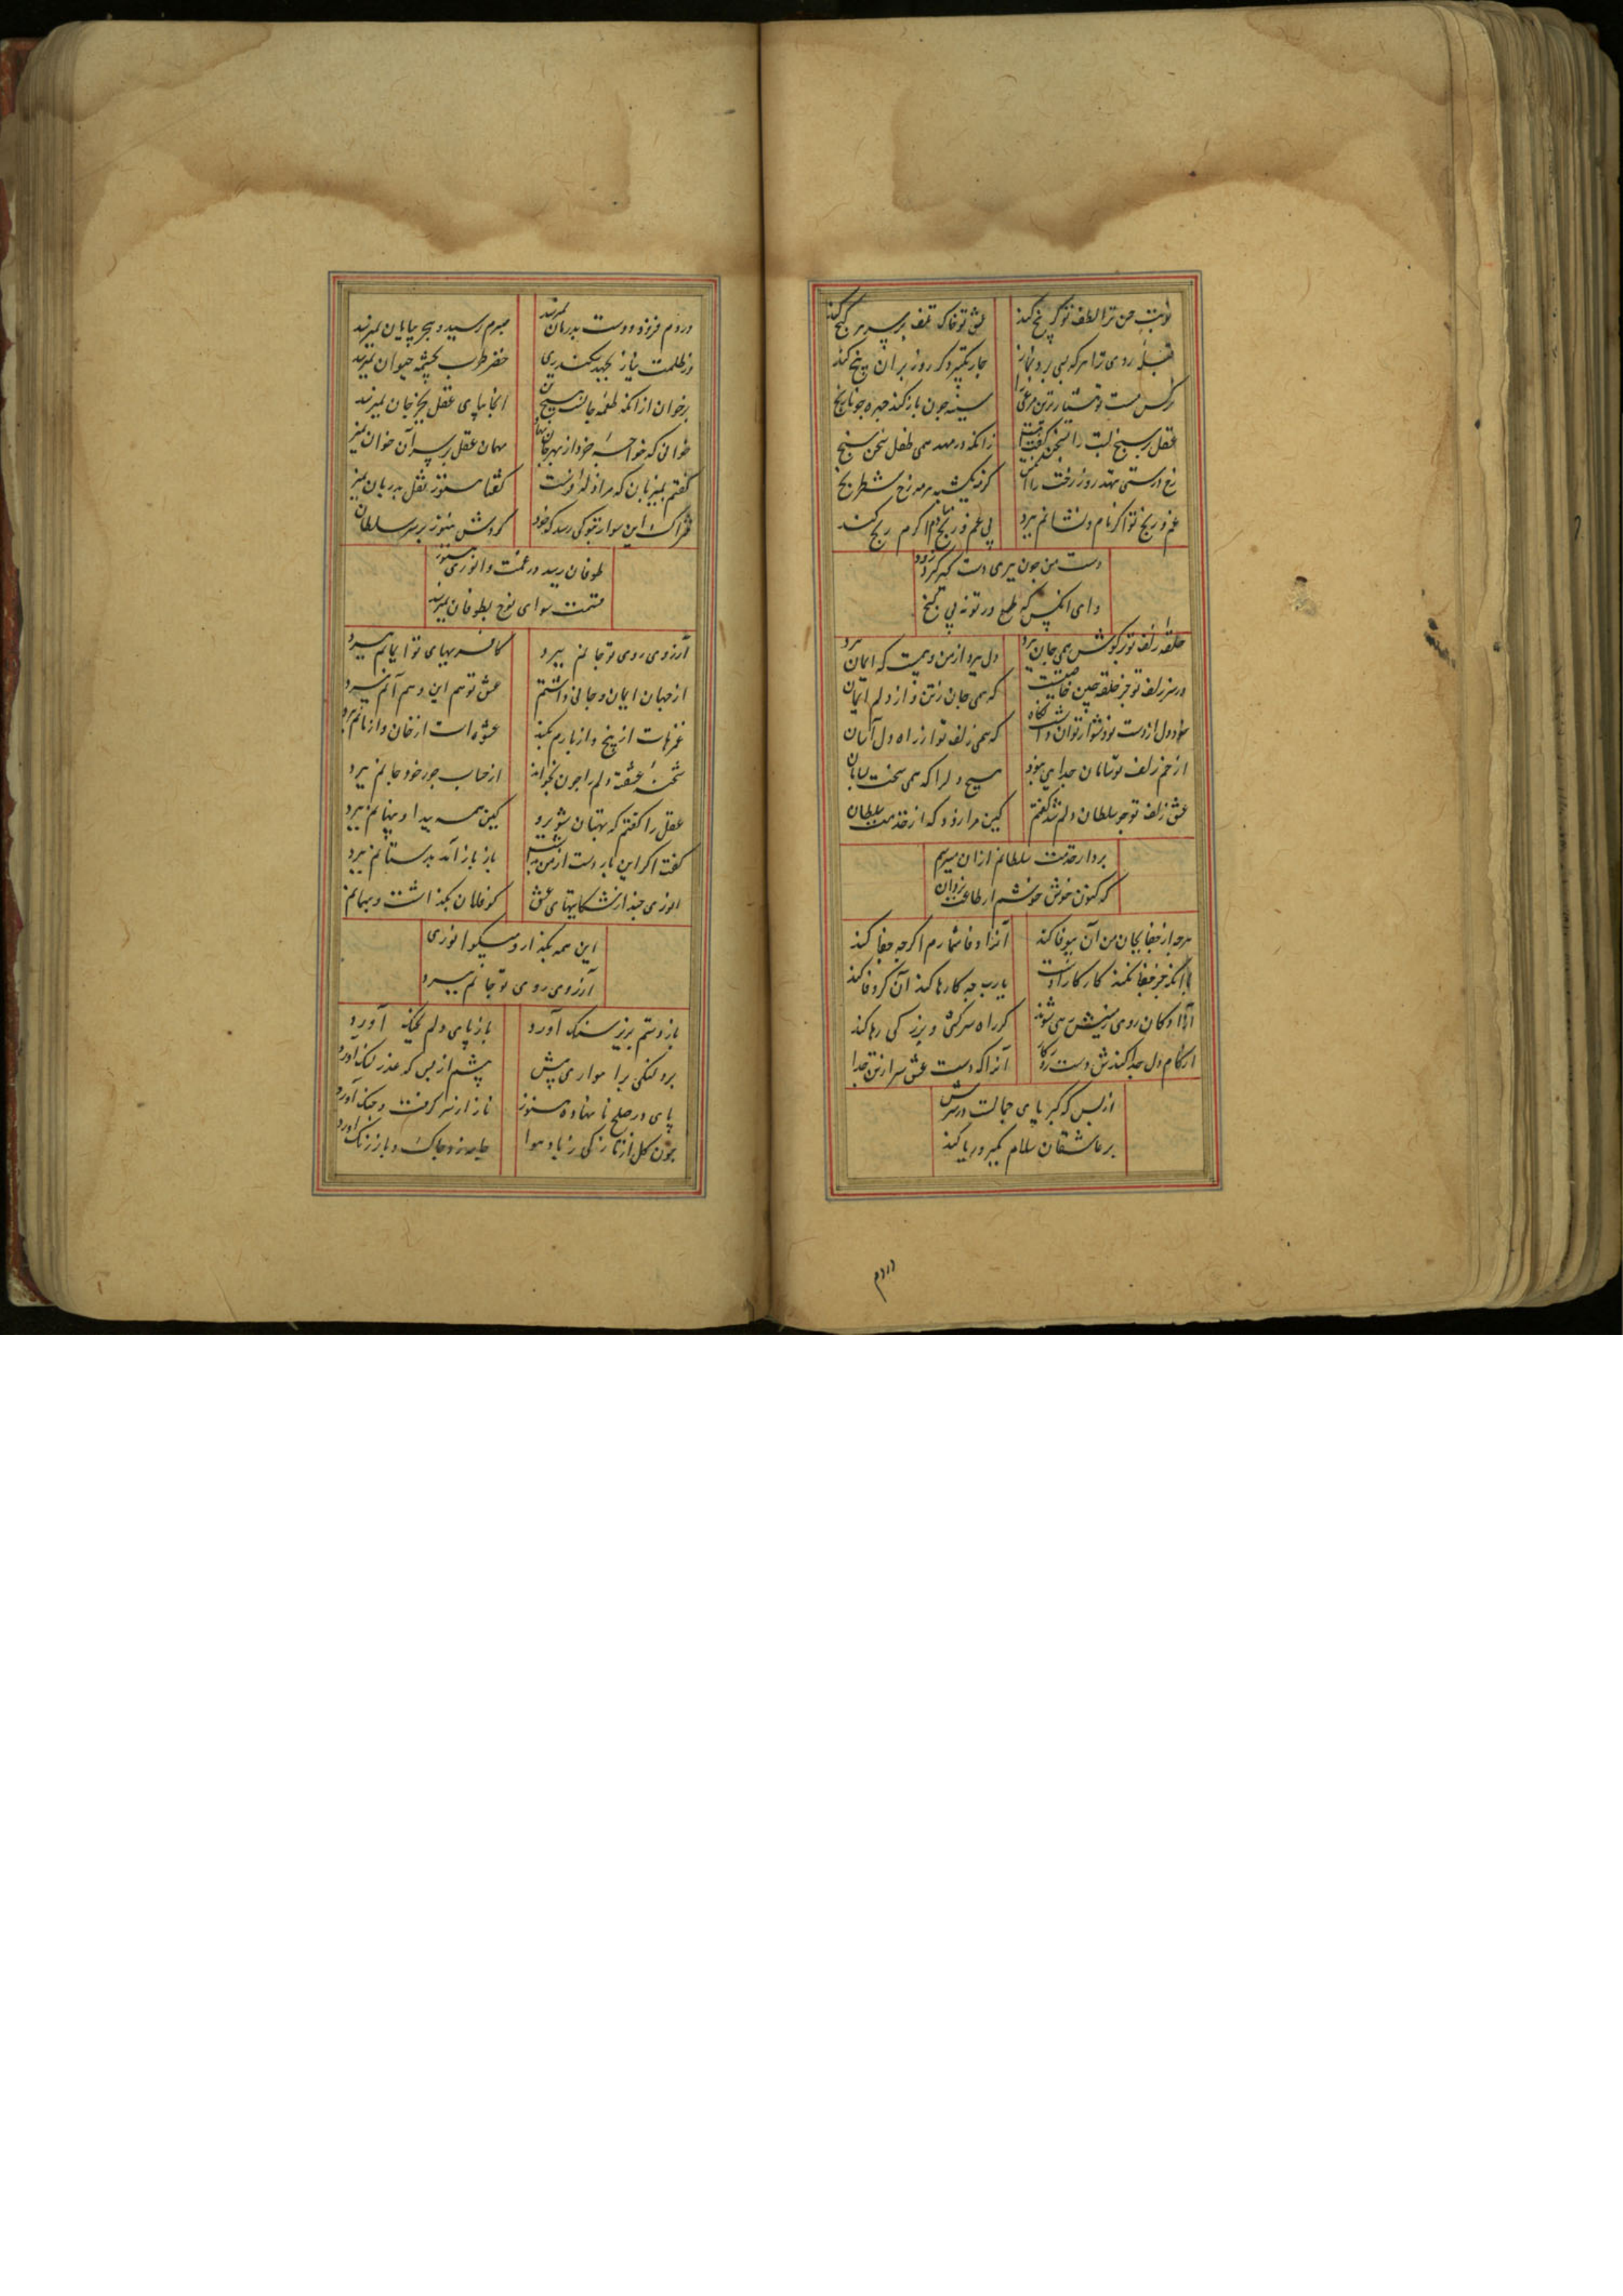 نوبت حسن ترا لطف تو گر پنج کند
عشق تو خاک تلف بر سر هر گنج کند
قبله روی ترا هر که شبی برد نماز
چار تکبیر دگر روز بر آن پنج کند
سینه چون باز کند چهره چو نارنج
عقل بر سنج لبت را بسخن گفت
زانکه در مهد همی طفل سخن سنج
غم و رنج تو اگر نام و نشانم ببرد
بی غم و رنج تو ام اکرم رنج کند
دست من چون بری دست گهر گرد زود
وای آنکس که طمع در تو نه بی گنج
حلقه زلف تو بر گوش همی جان برد
دل ببرد از من و بیمست که ایمان برد
در سر زلف تو جز حلقه و چین خاصیت
که همی جان ز تن و از دلم ایمان
که همی زلف تو از راه دل آسان
از خم زلف تو سامان جدایی نبود
هیچ دل را که همی سخت بسامان
عشق زلف تو چو سلطان دلم شد گفتم
کین مرا زود که از خدمت سلطان
برد از خدمت سلطانم ازان میترسم
که کنون خوش خوشم از طاعت یزدان
هرچه از جفا بجای من آن بیوفا کند
آنرا وفا شمارم اگرچه جفا کند
با آنکه جز جفا نکند کار کار اوست
یارب چه کارها کند آن گر وفا کند
آزادگان روی زمینش رهی شوند
گر راه سرکشی و بزرگی رها کند
از کام دل جدا کندش دست روزگار
آنرا که دست عشق سر از تن جدا
از بس که کبریای جمالت در سرش
بر عاشقان سلام بکبر و ریا کند
دردم فزود و دست بدرمان نمیرسد
صبرم رسید و هجر بپایان نمیرسد
در ظلمت نیاز بجهد سکندری
خضر طرب بچشمه حیوان نمیرسد
برخوان از آنکه طعمه جانست هیچ تن
آنجا بپای عقل بجز جان نمیرسد
مهمان عقل بر سر آن خوان نمیر
گفتم بمیزبان که مرا زله اوست
گفتا هنوز نقل بدربان نمیر
فتراک این سوار بتو کی رسد که خود
گردش هنوز بر سر سلطان
طوفان رسید در غمت و انوری هنوز
قسمت سرای نوح بطوفان نمیرسد
آرزوی روی تو جانم ببرد
کافریهای تو ایمانم ببرد
از جهان ایمان و جانی داشتم
عشق تو هم این و هم آنم ببرد
غمزهات از بیخ و از بارم بکند
عشوهات از خان و از مانم برد
شحنه عشقت دلم را چون بخواند
از حساب جور خود جانم ببرد
عقل را گفتم که پنهان شو برو
کین همه پیدا و پنهانم ببرد
گفت اگر این بار دست از من بداشت
باز باز آمد بدستانم ببرد
انوری چند از شکایتهای عشق
کو فلان بگذاشت و بهمانم
این همه بگذار و میگو انوری
آرزوی روی تو جانم ببرد
باز دستم بزیر سنگ آورد
باز پای دلم بچنگ آورد
برد لنگی براهواری پیش
پیشم از بس که عذر لنگ آورد
پای در صلح نا نهاده هنوز
ناز از سر گرفت و جنگ آورد
چون گل از تازگی زباد هوا
جامه زد چاک و باز رنگ آورد
دردم